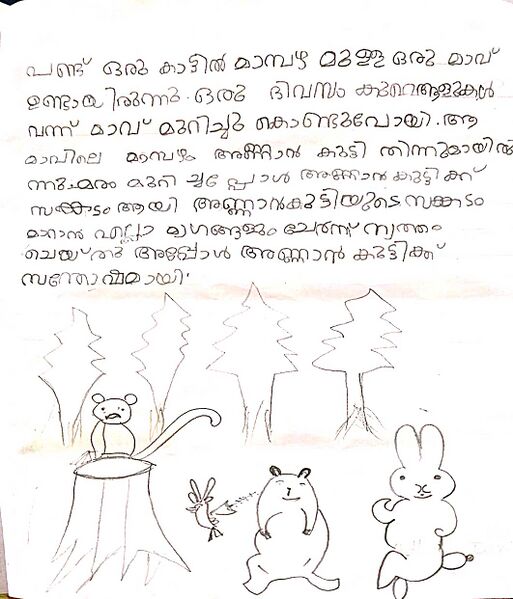 പണ്ട് ഒരു കാട്ടിൽ മാമ്പഴ മുള്ള ഒരു മാവ്
ഉണ്ടായിരുന്നു. ഒരു ദിവസം കുറെആളുകൾ
വന്ന് മാവ് മുറിച്ചു കൊണ്ടുപോയി. ആ
മാവിലെ മാമ്പഴം അണ്ണാൻ കുട്ടി തിന്നുമായിരു
ന്നു.മരം മുറി ച്ചപ്പോൾ അണ്ണാൻകുട്ടിക്ക്
സങ്കടം ആയി അണ്ണാൻകുട്ടിയുടെ സങ്കടം
മാറാൻ എല്ലാ മൃഗങ്ങളും ചേർന്ന് നൃത്തം
ചെയ്തു അപ്പോൾ അണ്ണാൻ കുട്ടിക്ക്
സന്തോഷമായി.